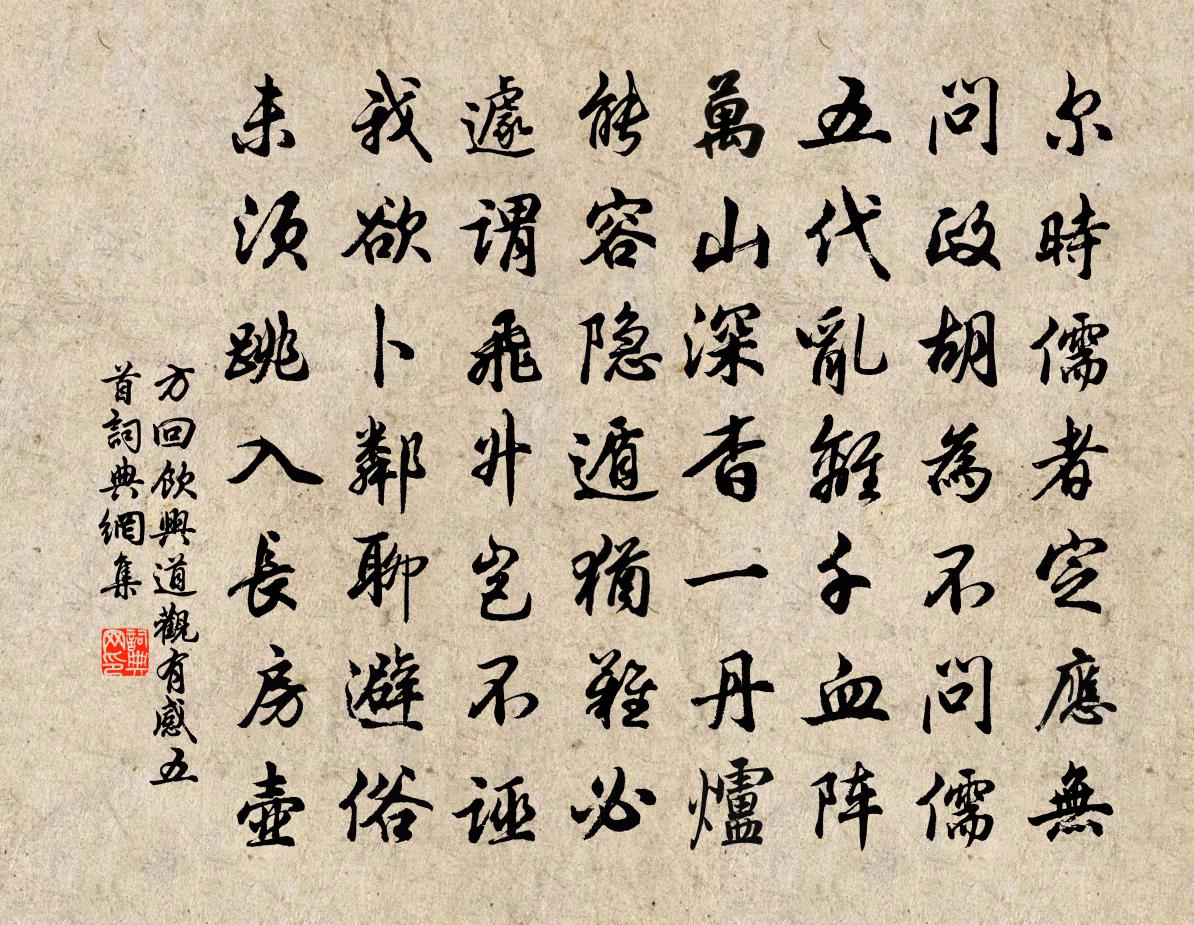 尔時儒者定應無
問政胡為不問儒
五代亂離千血阵
萬山深杳一丹爐
能容隐遁猶難必
遽謂飛升岂不誣
我欲卜鄰聊避俗
未须跳入長房壺
方回飲興道觀有感五
首詞典網集
詞典
网印